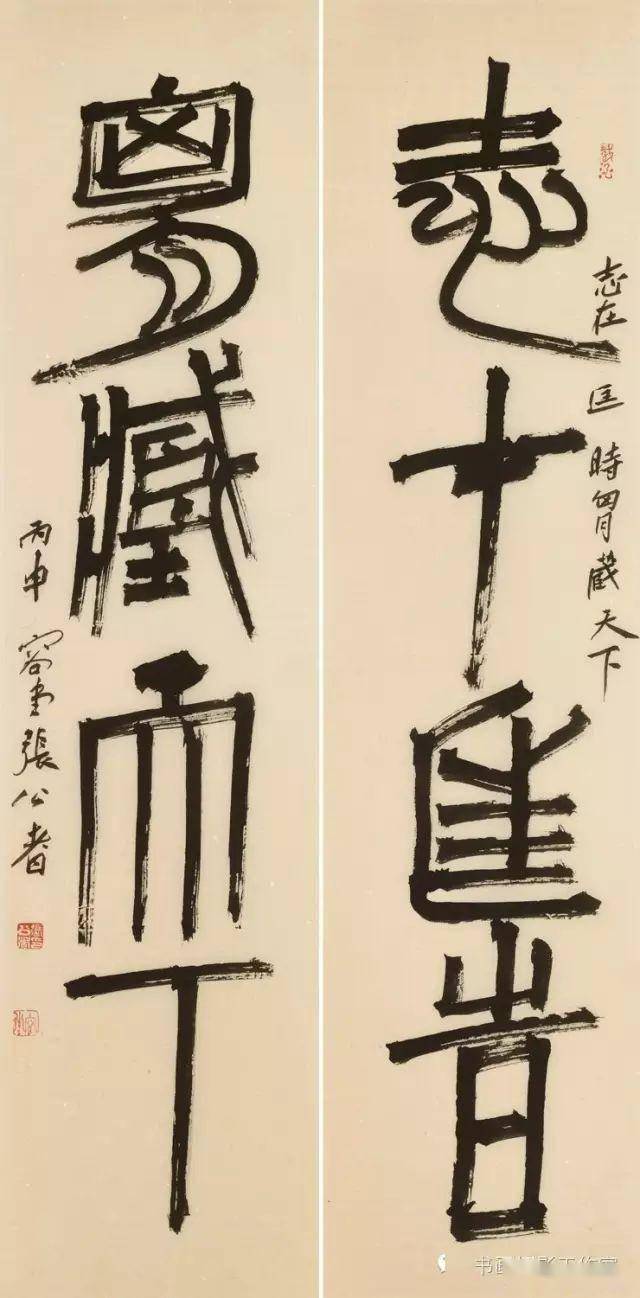 志在匡時
志在匡時胷藏天下
胷藏天下
丙申容堂張公者